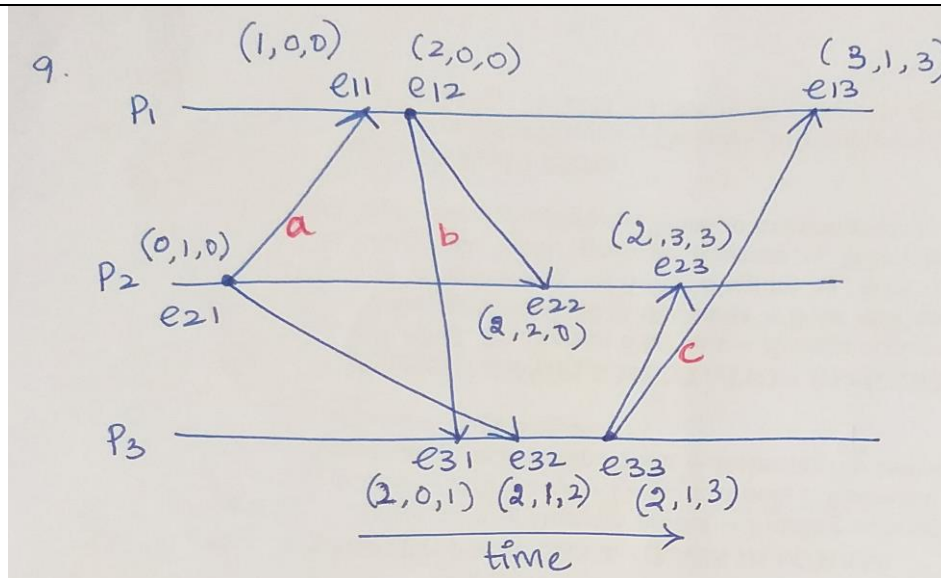 9.
(1,0,0) (2,0,0) (3,1,3)
e11 e12 e13
P1
a b
(0,1,0) (2,3,3)
P2 e23
e21 e22
(2,2,0)
c
P3
e31 e32 e33
(2,0,1) (2,1,2) (2,1,3)
time